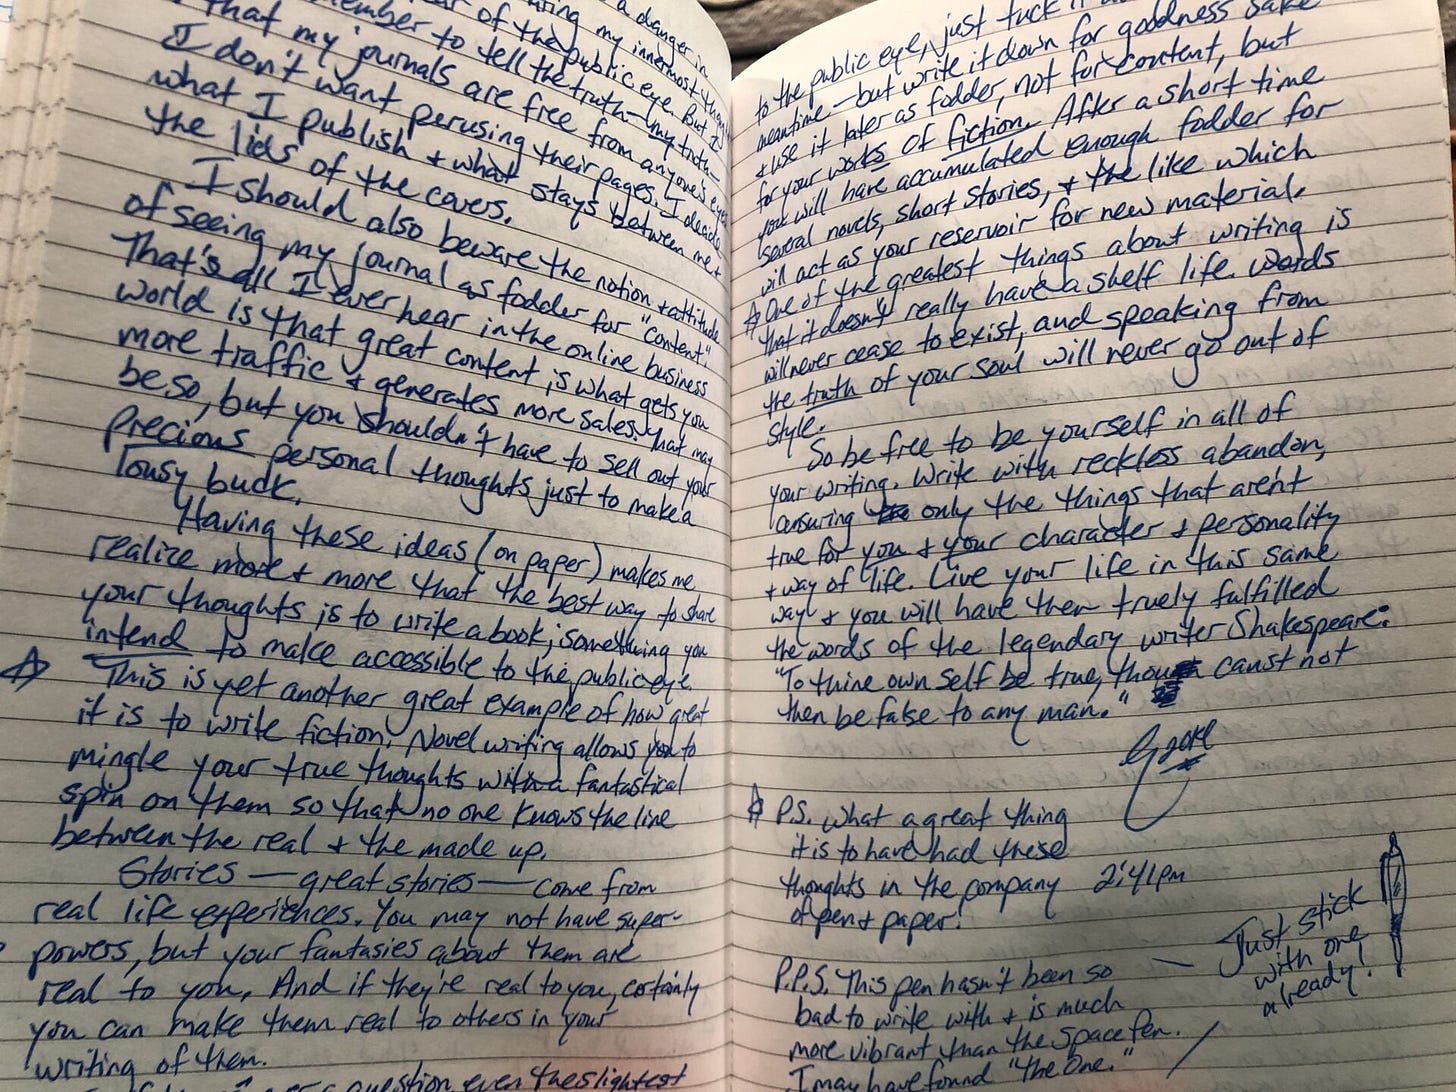 a danger in
ring my innermost though
ear of the public eye. But I
member to tell the truth—my truth—
that my journals are free from anyone's eyes
I don't want perusing their pages. I decide
what I publish + what stays between me +
the lids of the covers.
I should also beware the notion + attitude
of seeing my journal as fodder for "content".
That's all I ever hear in the online business
world is that great content is what gets you
more traffic + generates more sales. That may
be so, but you shouldn't have to sell out your
precious personal thoughts just to make a
lousy buck.
Having these ideas (on paper) makes me
realize more + more that the best way to share
your thoughts is to write a book; something you
intend to make accessible to the public eye.
This is yet another great example of how great
it is to write fiction. Novel writing allows you to
mingle your true thoughts with a fantastical
spin on them so that no one knows the line
between the real + the made up.
Stories — great stories — come from
real life experiences. You may not have super-
powers, but your fantasies about them are
real to you. And if they're real to you, certainly
you can make them real to others in your
writing of them.
a question even the slightest
to the public eye, just tuck it
meantime — but write it down for goodness sake
+ use it later as fodder, not for content, but
for your works of fiction. After a short time
you will have accumulated enough fodder for
several novels, short stories, + the like which
will act as your reservoir for new material.
One of the greatest things about writing is
that it doesn't really have a shelf life. Words
will never cease to exist, and speaking from
the truth of your soul will never go out of
style.
So be free to be yourself in all of
your writing. Write with reckless abandon,
censuring only the things that aren't
true for you + your character + personality
+ way of life. Live your life in this same
way + you will have then truely fulfilled
the words of the legendary writer Shakespeare:
"To thine own self be true, thou canst not
then be false to any man."
P.S. What a great thing
it is to have had these
thoughts in the company
of pen + paper!
2:41pm
P.P.S. This pen hasn't been so
bad to write with + is much
more vibrant than the Space Pen.
I may have found "The One."
— Just stick
with one
already!